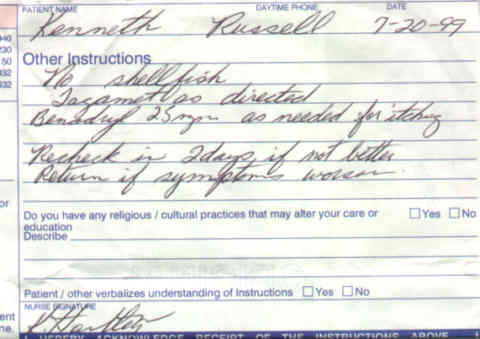 PATIENT NAME DAYTIME PHONE DATE
Kenneth Russell 7-20-99
Other Instructions
No shellfish
Tagamet as directed
Benadryl 25mgm as needed for itching
Recheck in 2days if not better
Return if symptoms worsen
Do you have any religious / cultural practices that may alter your care or ☐ Yes ☐ No
education
Describe
Patient / other verbalizes understanding of Instructions ☐ Yes ☐ No
NURSE SIGNATURE
I HEREBY ACKNOWLEDGE RECEIPT OF THE INSTRUCTIONS ABOVE